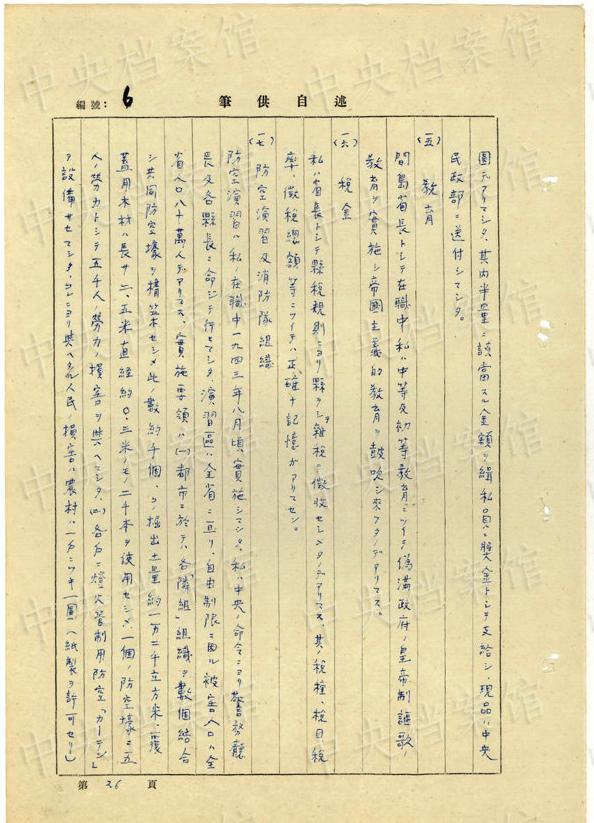 編號：6
筆供自述
圓デアリマシタ、其内半量ニ該當スル金額ヲ緝私員ニ獎金トシテ支給シ、現品ハ中央
民政部ニ送付シマシタ。
(一五) 教育
間島省長トシテ在職中私ハ中等及初等教育ニツイテ偽滿政府ノ皇帝制謳歌ノ
教育ヲ實施シ帝國主義的教育ヲ鼓吹シ來ツタノデアリマス。
(一六) 税金
私ハ省長トシテ縣税規則ニヨリ縣ヲシテ雜税ヲ徴收セシメタノデアリマス、其ノ税種、税目税
率、徴税總額等ニツイテハ正確ナ記憶ガアリマセン。
(一七) 防空演習及消防隊組織
防空演習ハ私ノ在職中一九四三年八月頃、實施シマシタ、私ハ中央ノ命令ニヨリ警務廳
長及各縣長ニ命ジテ行セマシタ、演習區ハ全省ニ亘リ、自由制限ニ因ル被害人口ハ全
省人口八十萬人デアリマス、實施要領ハ(一)都市ニ於テハ各「隣組」組織ヲ數個結合
シ共同防空壕ヲ構築セシメ此ノ數約千個、ソノ掘出土量約一万二千立方米、覆
蓋用木材ハ長サ二、五米直經約〇、三米ノモノ二千本ヲ使用セシメ、一個ノ防空壕ニ五
人ノ勞力トシテ五千人ノ勞力ノ損害ヲ與ヘマシタ、(二)各戸ニ燈火管制用防空「カーテン」
ヲ設備サセマシタ、コレニヨリ與ヘタル人民ノ損害ハ農村ハ一戸ニツキ一圓(紙製ヲ許可セリ)
第 26 頁
中央档案馆